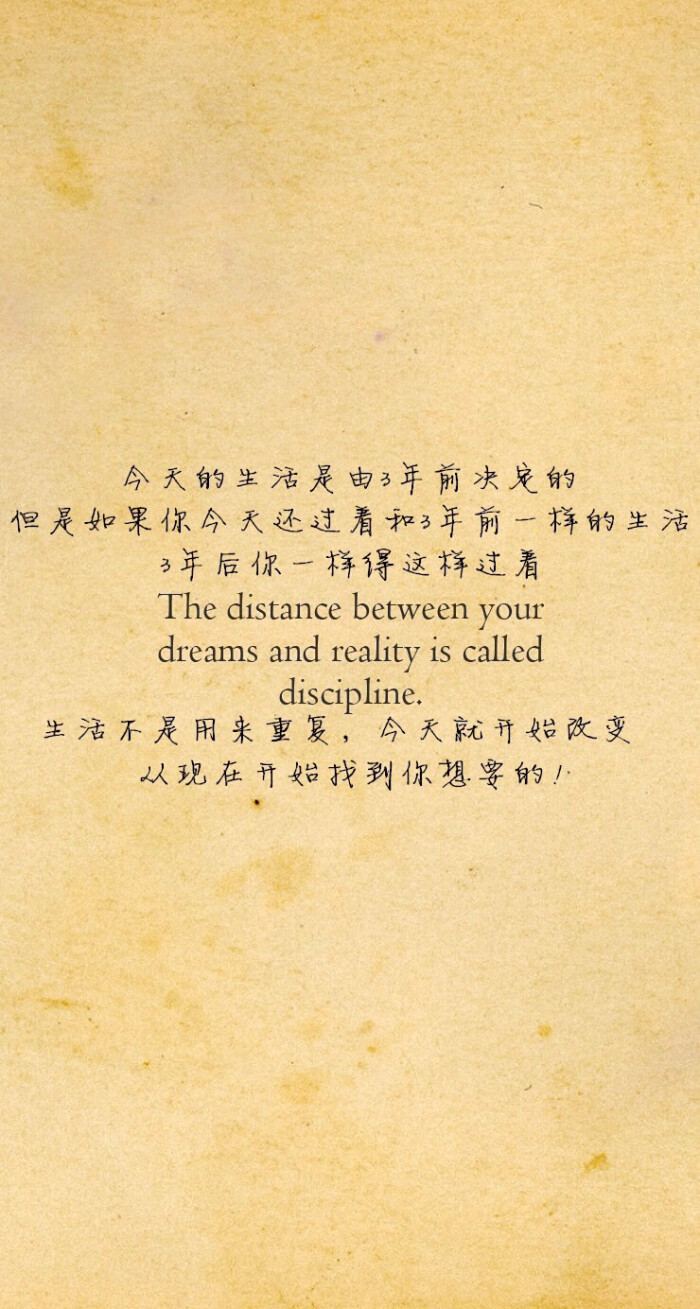 今天的生活是由3年前决定的
但是如果你今天还过着和3年前一样的生活
3年后你一样得这样过着
The distance between your
dreams and reality is called
discipline.
生活不是用来重复，今天就开始改变
从现在开始找到你想要的！